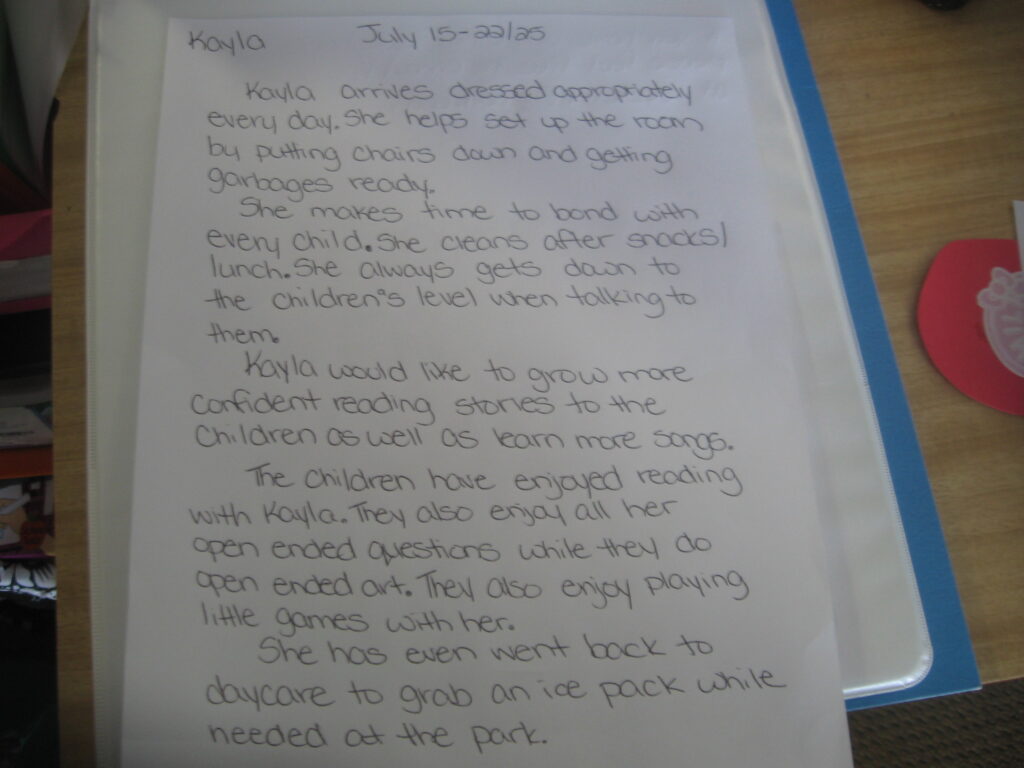 Kayla July 15-22/25
Kayla arrives dressed appropriately
every day. She helps set up the room
by putting chairs down and getting
garbages ready.
She makes time to bond with
every child. She cleans after snacks/
lunch. She always gets down to
the children's level when talking to
them.
Kayla would like to grow more
confident reading stories to the
children as well as learn more songs.
The children have enjoyed reading
with Kayla. They also enjoy all her
open ended questions while they do
open ended art. They also enjoy playing
little games with her.
She has even went back to
daycare to grab an ice pack while
needed at the park.